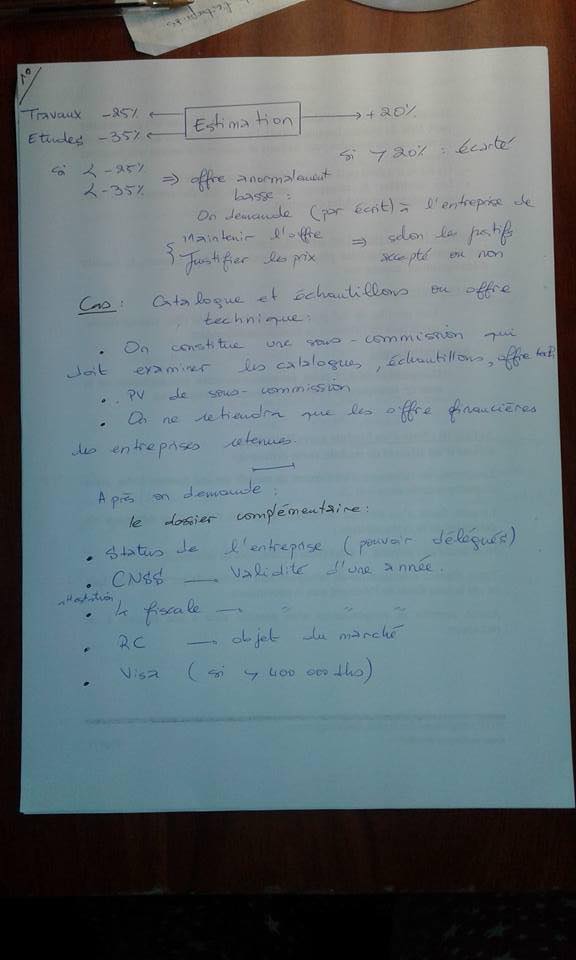 N°
Travaux -25% ← Estimation → +20%
Etudes -35% ←
si > 20% : écarté
si < -25%
< -35% ⇒ offre anormalement
basse :
On demande (par écrit) à l'entreprise de
{ Maintenir l'offre ⇒ selon les justifs
Justifier les prix accepté ou non
Cas : Catalogue et échantillons ou offre
technique :
• On constitue une sous-commission qui
doit examiner les catalogues, échantillons, offre tech
• PV de sous-commission
• On ne retiendra que les offre financières
des entreprises retenues.
Après on demande :
le dossier complémentaire :
• Status de l'entreprise (pouvoir délégués)
• CNSS → Validité d'une année.
Attestation
• fiscale → " " "
• RC → objet du marché
• Visa (si > 400 000 dhs)